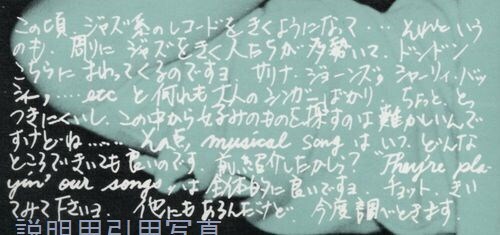 この頃、ジャズ系のレコードをきくようになって・・・ それというのも、周りにジャズをきく人たちが多勢いて、ドンドン
こちらにまわってくるのですヨ サリナ・ジョーンズ、シャーリィ・バッ
シー,・・・・etc と何れも大人のシンガーばかり。ちょっと、とっ
つきにくいし、この中から好みのものを探すのは難かしいんで
すけどね・・・・・・ その点、musical song は いつ、どんな
ところできいても良いのです 前、紹介したかしら? "They're pla-
yin' our songs,"は 全体的に良いですヨ. チョット、きい
てみて下さいヨ. 他にもあるんだけど、今度調べときます.
説明用引用写真